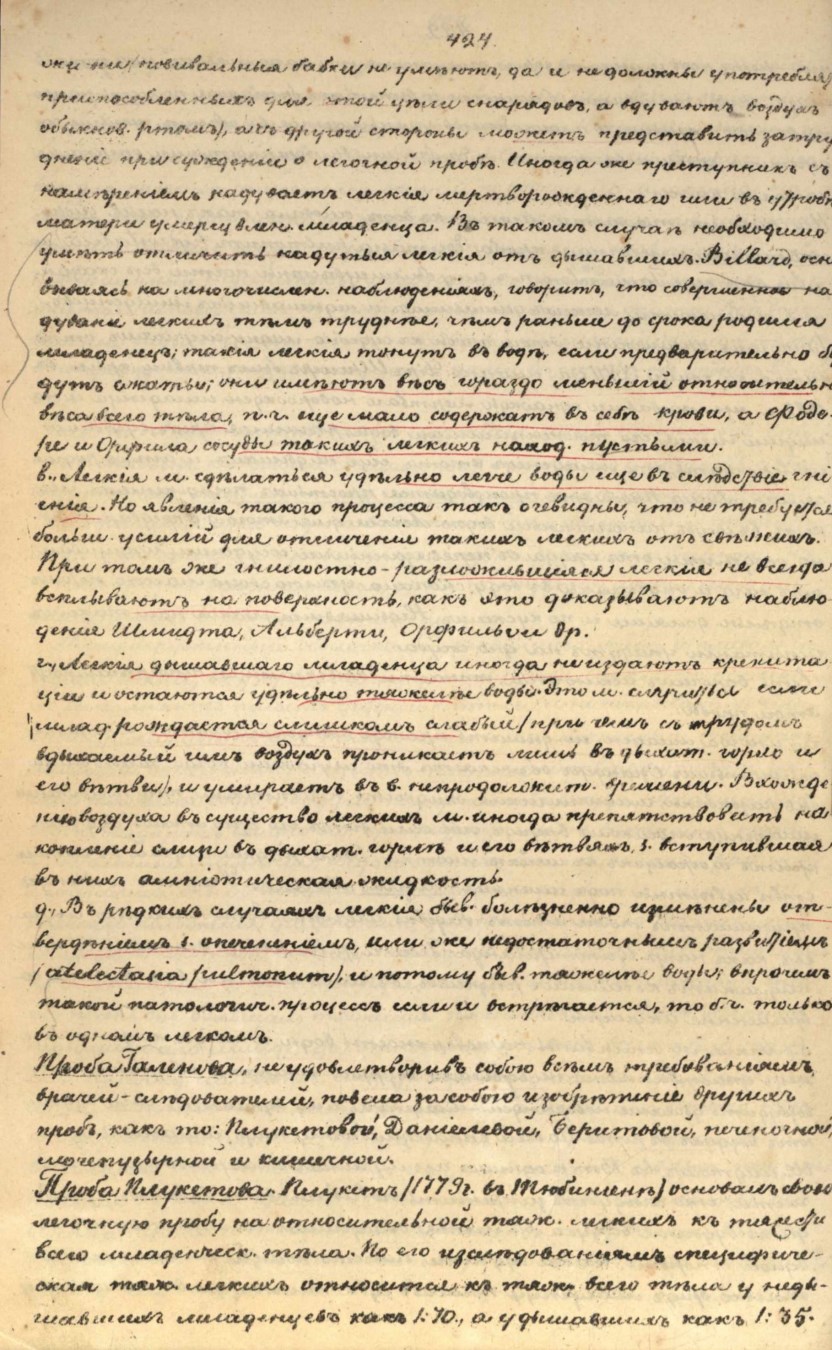 424.
оки ни/повивальныя бабки не умѣютъ, да и недолжны употребля
приспособленныхъ для этой цѣли снарядовъ, а вдуваютъ воздухъ
обыкнов. ртомъ/, а съ другой стороны можетъ представить затру
дненіе при сужденіи о легочной пробѣ. Иногда же преступникъ съ
намѣреніемъ надуваетъ легкія мертворожденнаго или въ утробѣ
матери умерщвлен. младенца. Въ такомъ случаѣ необходимо
умѣть отличить надутыя легкія отъ дышавшихъ. Billard, осн
вываясь на многочислен. наблюденіяхъ, говоритъ, что совершенное на
дуваніе легкихъ тѣмъ труднѣе, чѣмъ раньше до срока родился
младенецъ; такія легкія тонутъ въ водѣ, если предварительно бу
дутъ сжаты; они имѣютъ вѣсъ гораздо меньшій относительно
вѣса всего тѣла, п. ч. еще мало содержатъ въ себѣ крови, а Фоде-
ре и Орфила сосуды такихъ легкихъ наход. пустыми.
в., Легкія м. сдѣлаться удѣльно легче воды еще въ слѣдствіе гні
енія. Но явленія такого процесса такъ очевидны, что не требуется
больш. усилій для отличенія такихъ легкихъ отъ свѣжихъ.
При томъ же гнилостно-разложившіяся легкія не всегда
всплываютъ на поверхность, какъ это доказываютъ наблю
денія Шмидта, Альберти, Орфилы и др.
г., Легкія дышавшаго младенца иногда не издаютъ крепита
ціи и остаются удѣльно тяжелѣе воды. Это м. случиться если
млад. рождается слишкомъ слабый/при чемъ съ трудомъ
вдыхаемый имъ воздухъ проникаетъ лишь въ дыхат. горло и
его вѣтви/, и умираетъ въ в. непродолжит. времени. Вхожде
нію воздуха въ существо легкихъ м. иногда препятствовать на
копленіе слизи въ дыхат. горлѣ и его вѣтвяхъ, s. вступившая
въ нихъ амніотическая жидкость.
д., Въ рѣдкихъ случаяхъ легкія быв. болѣзненно измѣнены от-
вердѣніемъ s. опеченѣніемъ, или же недостаточнымъ развитіемъ
/atelectasia pulmonum/, и потому быв. тяжелѣе воды; впрочемъ
такой патологич. процессъ если и встрѣчается, то б. ч. только
въ одномъ легкомъ.
Проба Галенова, неудовлетворивъ собою всѣмъ требованіямъ
врачей-слѣдователей, повела за собою изобрѣтеніе другихъ
пробъ, какъ то: Плукетовой, Даніелевой, Бернтовой, печеночной,
мочепузырной и кишечной.
Проба Плукетова. Плукетъ/1779г. въ Тюбингенѣ/ основалъ свою
легочную пробу на относительной тяж. легкихъ къ тяжести
всего младенческ. тѣла. По его изслѣдованіямъ специфиче-
ская тяж. легкихъ относится къ тяж. всего тѣла у неды-
шавшихъ младенцевъ какъ 1:70., а у дышавшихъ какъ 1:35.